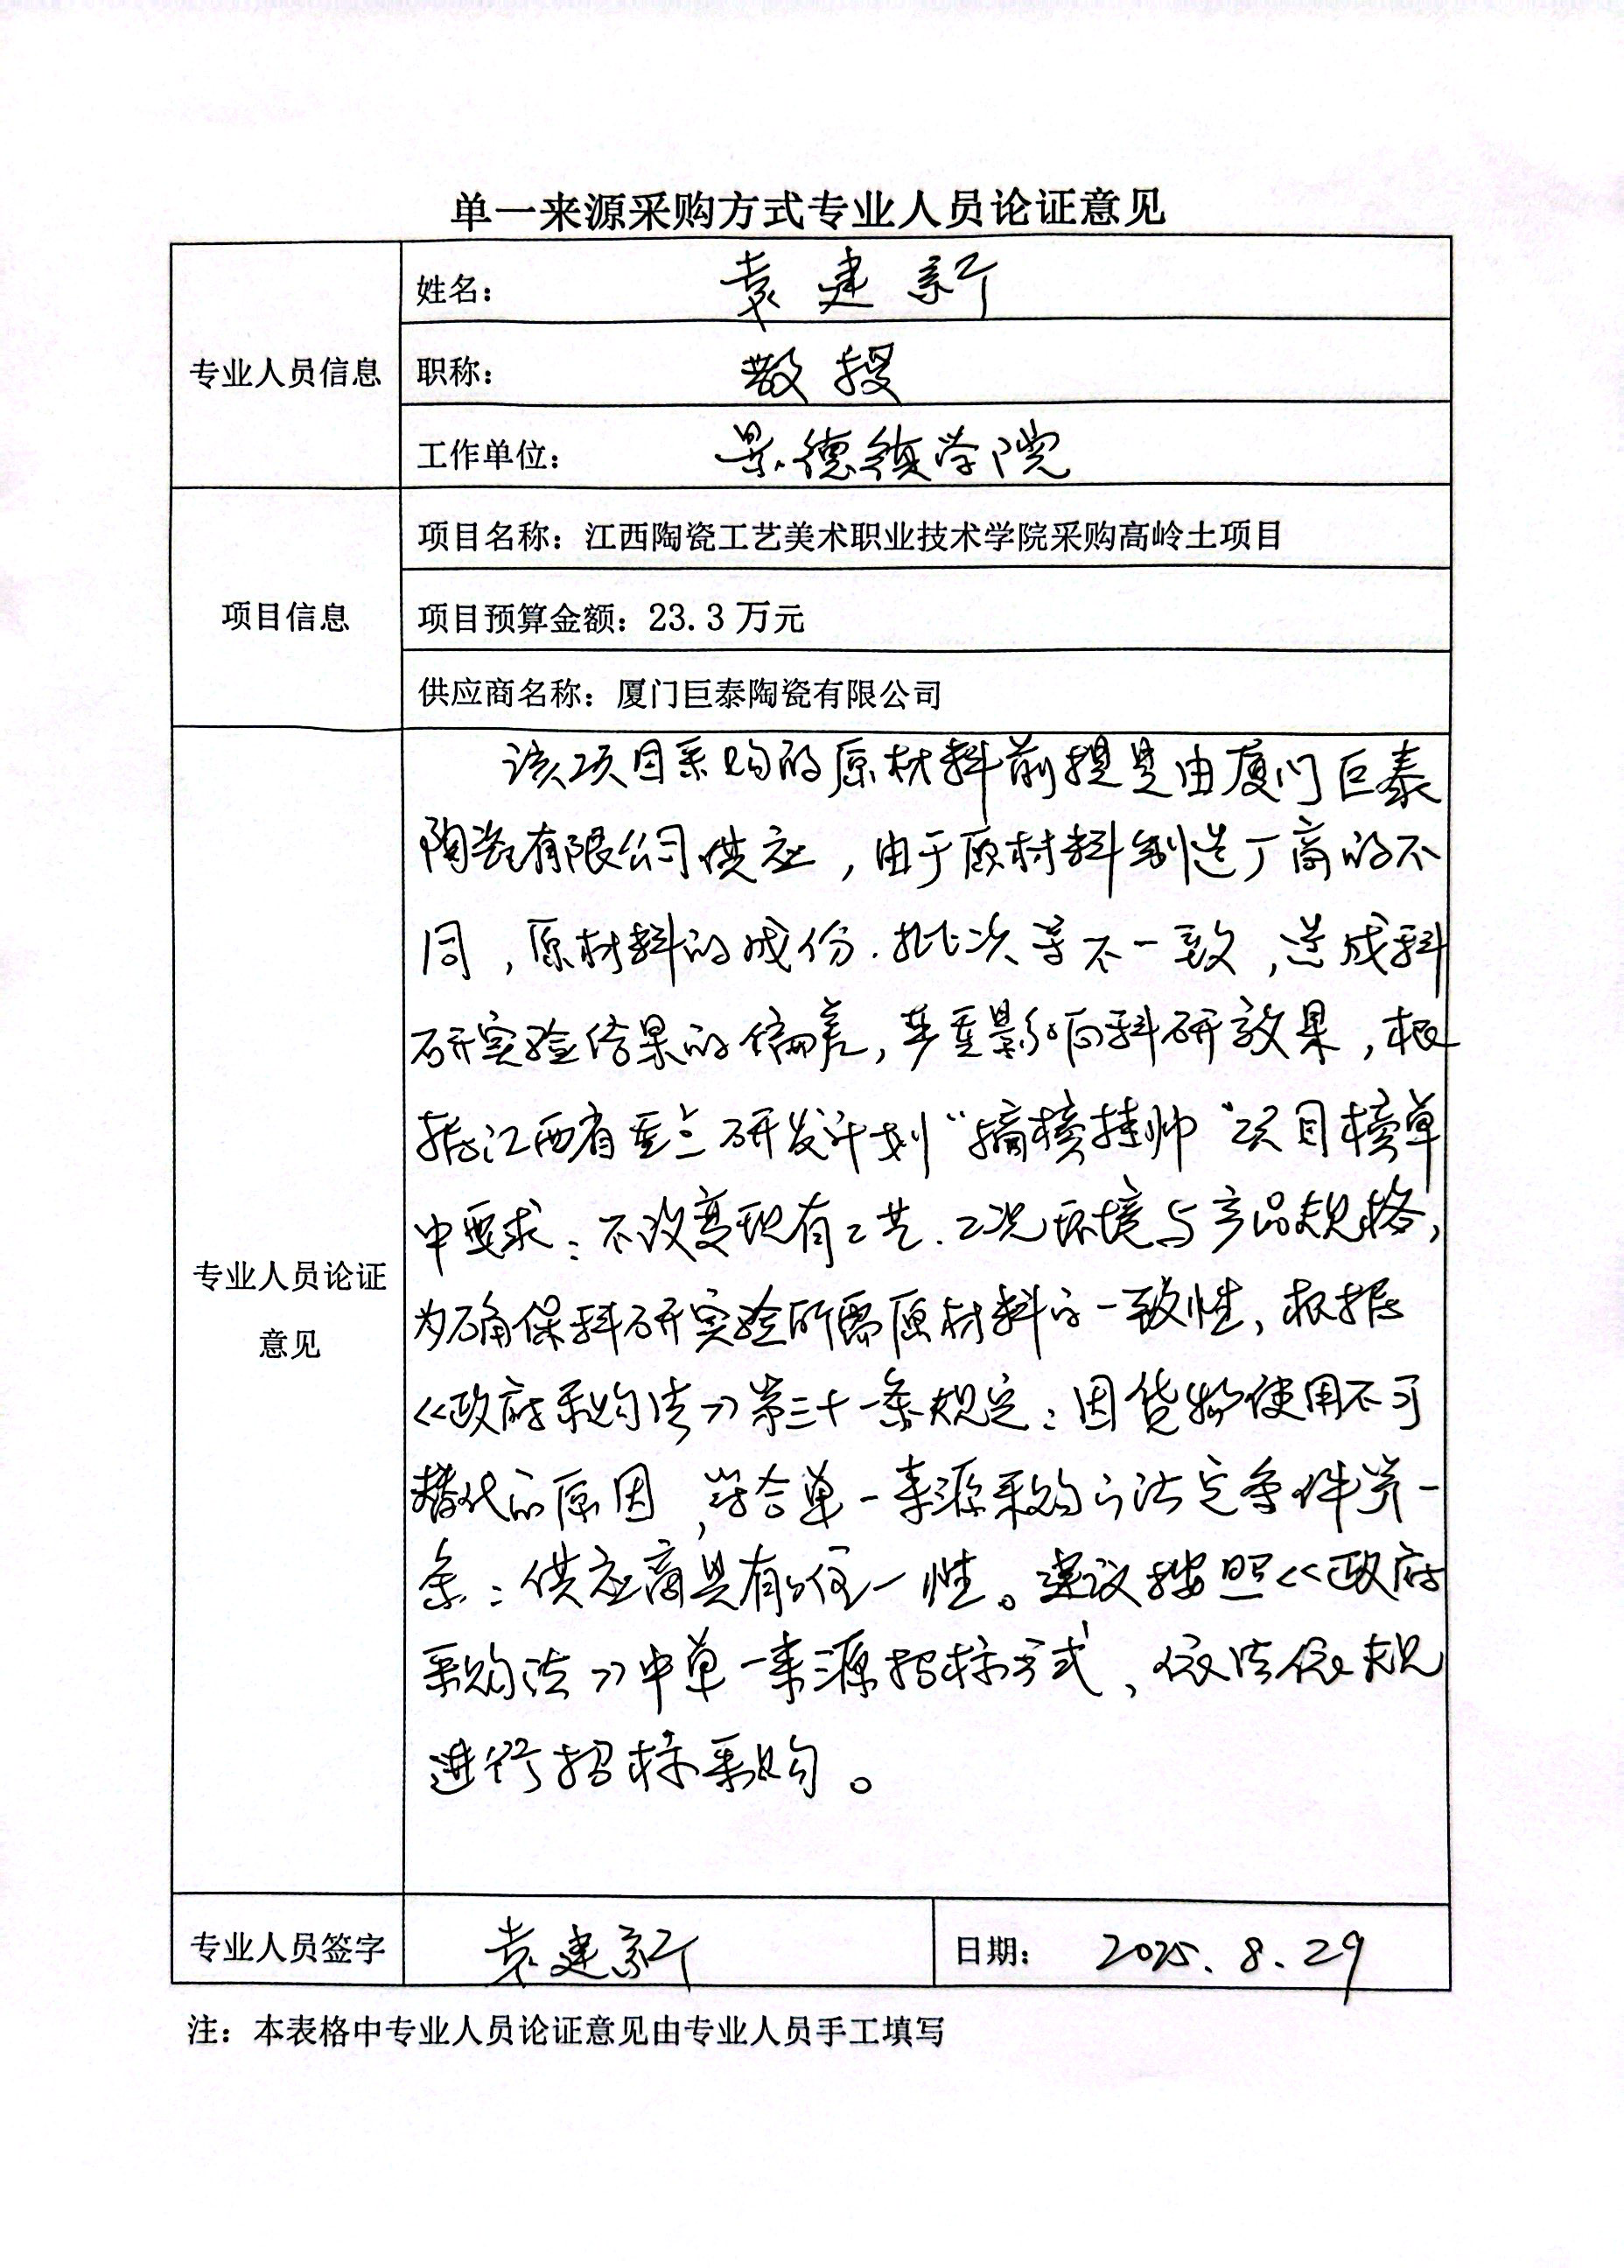 单一来源采购方式专业人员论证意见
专业人员信息
姓名： 袁建新
职称： 教授
工作单位： 景德镇学院
项目信息
项目名称：江西陶瓷工艺美术职业技术学院采购高岭土项目
项目预算金额：23.3 万元
供应商名称：厦门巨泰陶瓷有限公司
专业人员论证
意见
该项目采购的原材料前提是由厦门巨泰
陶瓷有限公司供应，由于原材料制造厂商的不
同，原材料的成份、批次等不一致，造成科
研实验结果的偏差，严重影响科研效果，根
据江西省重点研发计划“揭榜挂帅”项目榜单
中要求：不改变现有工艺、工况环境与产品规格，
为确保科研实验所需原材料的一致性，根据
《政府采购法》第三十一条规定：因货物使用不可
替代的原因，符合单一来源采购的法定条件第一
条：供应商具有唯一性。建议按照《政府
采购法》中单一来源招标方式，依法依规
进行招标采购。
专业人员签字 袁建新 日期： 2025.8.29
注：本表格中专业人员论证意见由专业人员手工填写